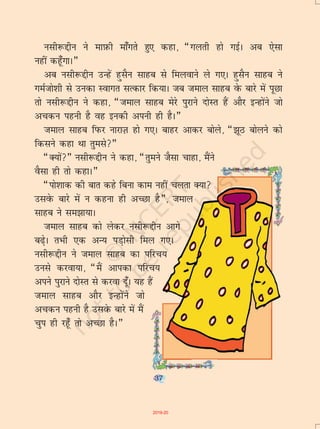 नसीरूद्दीन ने माफ़ी माँगते हुए कहा, “गलती हो गई। अब ऐसा
नहीं कहूँगा।”
अब नसीरूद्दीन उन्हें हुसैन साहब से मिलवाने ले गए। हुसैन साहब ने
गर्मजोशी से उनका स्वागत सत्कार किया। जब जमाल साहब के बारे में पूछा
तो नसीरूद्दीन ने कहा, “जमाल साहब मेरे पुराने दोस्त हैं और इन्होंने जो
अचकन पहनी है वह इनकी अपनी ही है।”
जमाल साहब फिर नाराज़ हो गए। बाहर आकर बोले, “झूठ बोलने को
किसने कहा था तुमसे?”
“क्यों?” नसीरूद्दीन ने कहा, “तुमने जैसा चाहा, मैंने
वैसा ही तो कहा।”
“पोशाक की बात कहे बिना काम नहीं चलता क्या?
उसके बारे में न कहना ही अच्छा है”, जमाल
साहब ने समझाया।
जमाल साहब को लेकर नसीरूद्दीन आगे
बढ़े। तभी एक अन्य पड़ोसी मिल गए।
नसीरूद्दीन ने जमाल साहब का परिचय
उनसे करवाया, “मैं आपका परिचय
अपने पुराने दोस्त से करवा दूँ। यह हैं
जमाल साहब और इन्होंने जो
अचकन पहनी है उसके बारे में मैं
चुप ही रहूँ तो अच्छा है।”
37
2019-20